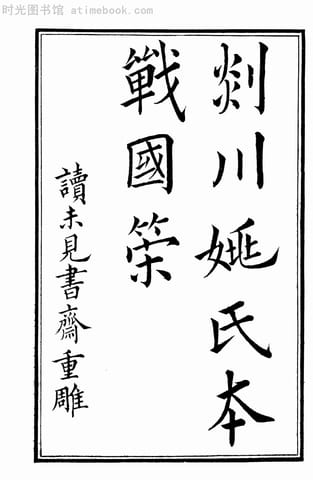 时光图书馆 atimebook.com
剡川姚氏本
戰國策
讀未見書齋重雕